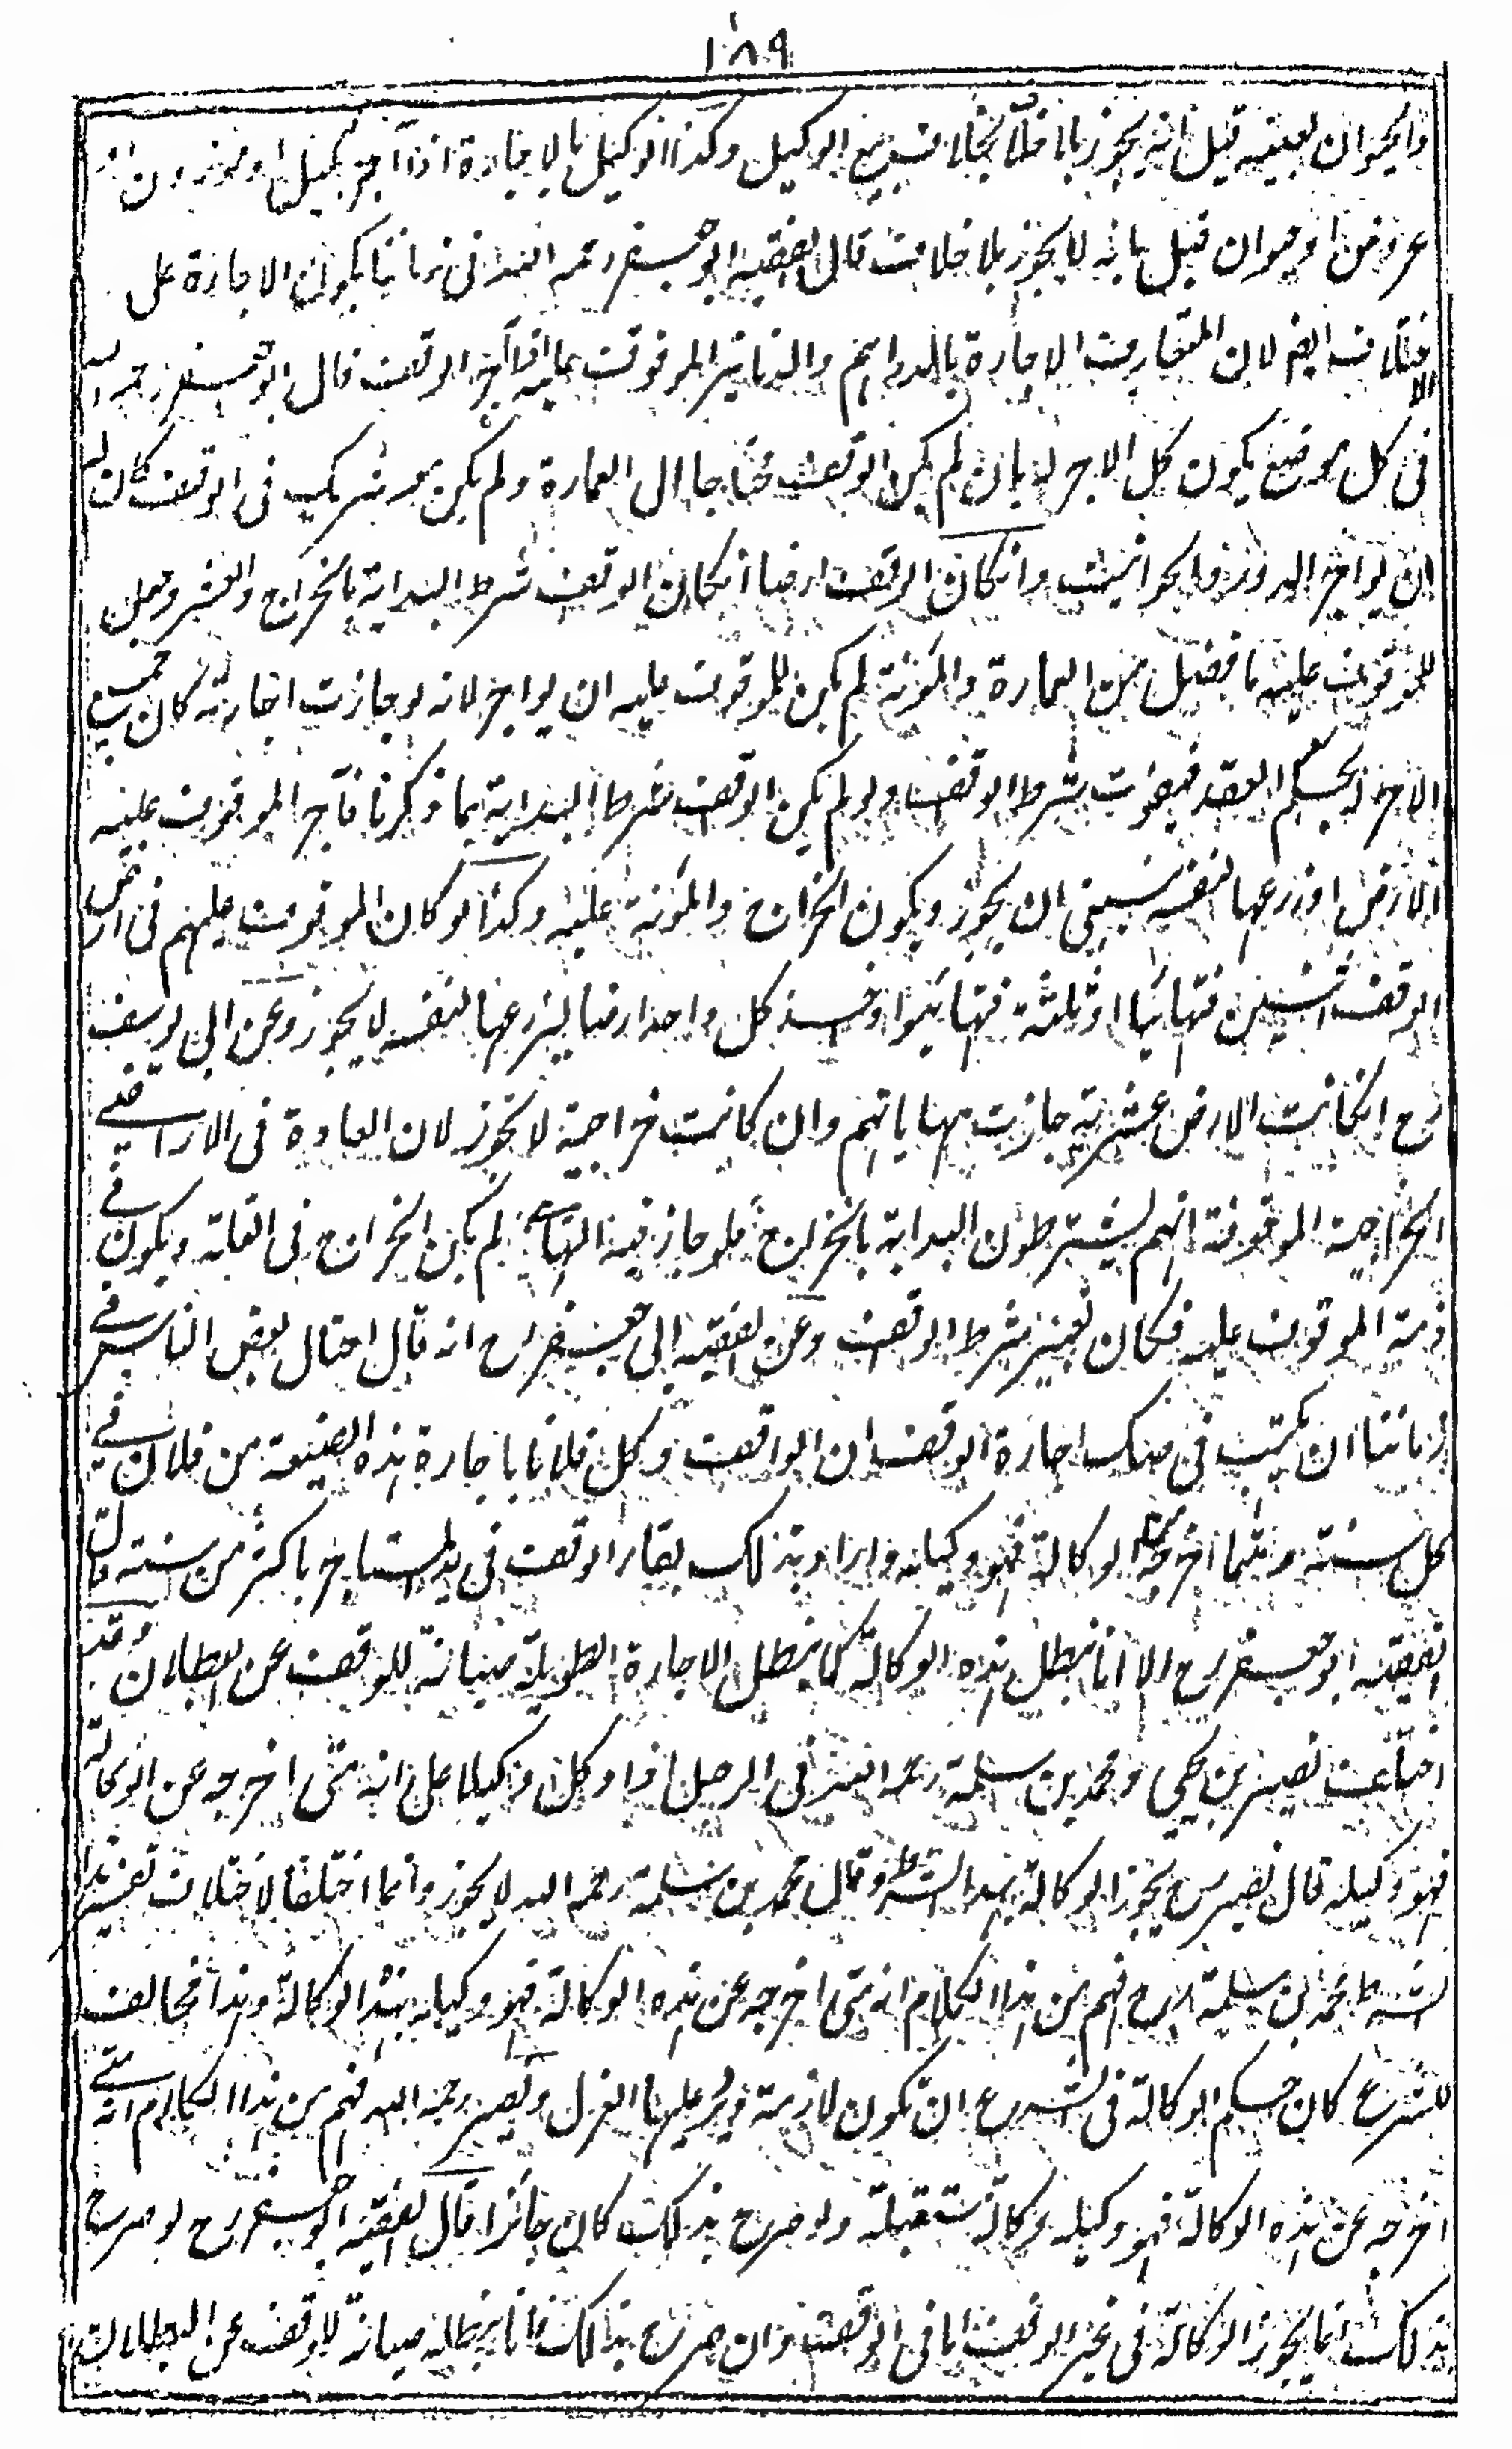 ١٨٩
والحيوان بعينه قيل انه يجوز بلا خلاف بخلاف بيع الوكيل وكذا الوكيل بالاجارة اذا آجر بمكيل او موزون او
عروض او حيوان قيل بانه لا يجوز بلا خلاف قال الفقيه ابو جعفر رحمه الله فى زماننا يكون الاجارة على
الاختلاف ايضا لان المتعارف الاجارة بالدراهم والدنانير الموقوف عليه اذا آجر الوقف قال ابو جعفر رحمه الله
فى كل موضع يكون كل الاجر له بان لم يكن الوقف محتاجا الى العمارة ولم يكن معه شريك فى الوقف كان له
ان يواجر الدور والحوانيت وانكان الوقف ارضا انكان الوقف شرط البداية بالخراج والعشر وجعل
للموقوف عليه ما فضل من العمارة والمؤنة لم يكن للموقوف عليه ان يواجر لانه لو جازت اجارته كان جميع
الاجر له بحكم العقد فيفوت شرط الوقف ولو لم يكن الوقف شرط البداية بما ذكرنا فآجر الموقوف عليه
الارض او زرعها لنفسه ينبغى ان يجوز ويكون الخراج والمؤنة عليه وكذا لو كان الموقوف عليهم فى ارض
الوقف اثنين فتهائيا او ثلثة فتهائيوا واخذ كل واحد ارضا ليزرعها لنفسه لا يجوز وعن ابى يوسف
رح انكانت الارض عشرية جازت مهاياتهم وان كانت خراجية لا تجوز لان العادة فى الاراضى
الخراجية الموقوفة انهم يشترطون البداية بالخراج فلو جاز فيه التهائى لم يكن الخراج فى الغلة ويكون فى
ذمة الموقوف عليه فكان تغيير شرط الوقف وعن الفقيه ابى جعفر رح انه قال احتال بعض الناس فى
زماننا ان يكتب فى صك اجارة الوقف ان الواقف وكل فلانا باجارة هذه الضيعة من فلان فى
كل سنة ومتى اخرجه عن الوكالة فهو وكيله وارادوا بذلك بقاء الوقف فى يد المستاجر باكثر من سنة قال
الفقيه ابو جعفر رح الا انا نبطل هذه الوكالة كما نبطل الاجارة الطويلة صيانة للوقف عن البطلان وقد
اختلف نصير بن يحيى ومحمد بن سلمة رحمه الله فى الرجل اذا وكل وكيلا على انه متى اخرجه عن الوكالة
فهو وكيله قال نصير رح يجوز الوكالة بهذا الشرط وقال محمد بن سلمة رحمه الله لا يجوز وانما اختلفا لاختلاف تفسير هذا
الشرط محمد بن سلمة رح فهم من هذا الكلام انه متى اخرجه عن هذه الوكالة فهو وكيله بهذه الوكالة وهذا مخالف
للشرع كان حكم الوكالة فى الشرع ان تكون لازمة ويرد عليها العزل ونصير رحمه الله فهم من هذا الكلام انه متى
اخرجه عن هذه الوكالة فهو وكيله وكالة مستقبلة ولو صرح بذلك كان جائزا قال الفقيه ابو جعفر رح لو صرح
بذلك انما يجوز الوكالة فى غير الوقف اما فى الوقف وان صرح بذلك فانا نبطله صيانة للوقف عن البطلان